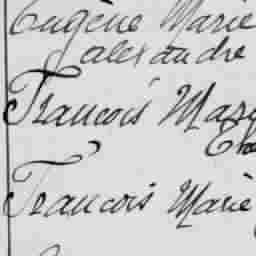 Eugène Marie
alexandre
Francois Mari
Francois Marie